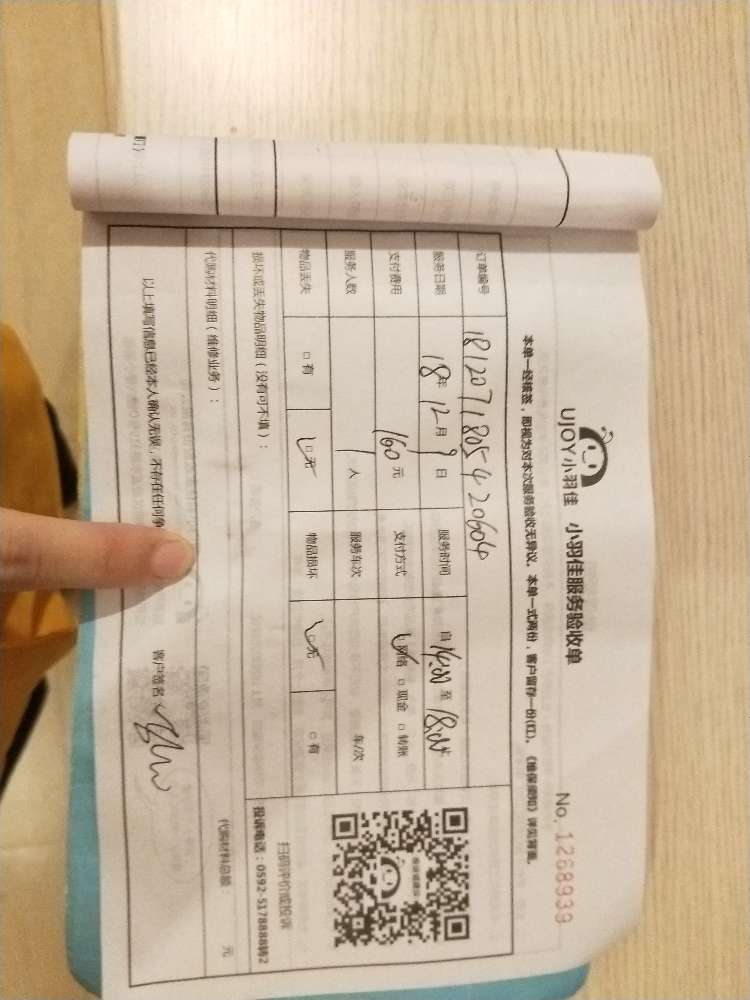 UJOY小羽佳 小羽佳服务验收单 No. 1268939
本单一经核签，即视为对本次服务验收无异议。本单一式两份，客户留存一份(红)。《维保须知》详见背面。
订单编号 18120718054 20604
服务日期 18年 12月 9日 服务时间 自 14:00 至 18:00
支付费用 160元 支付方式 网络 □ 现金 □ 转账
服务人数 1 人 服务车次 车/次
物品丢失 □ 有 □ 无 物品损坏 □ 无 □ 有
扫码评价或投诉
投诉电话：0592-5178888转2
损坏或丢失物品明细（没有可不填）：
代购材料明细（维修业务）： 代购材料总额： 元
以上填写信息已经本人确认无误，不存在任何争 客户签名